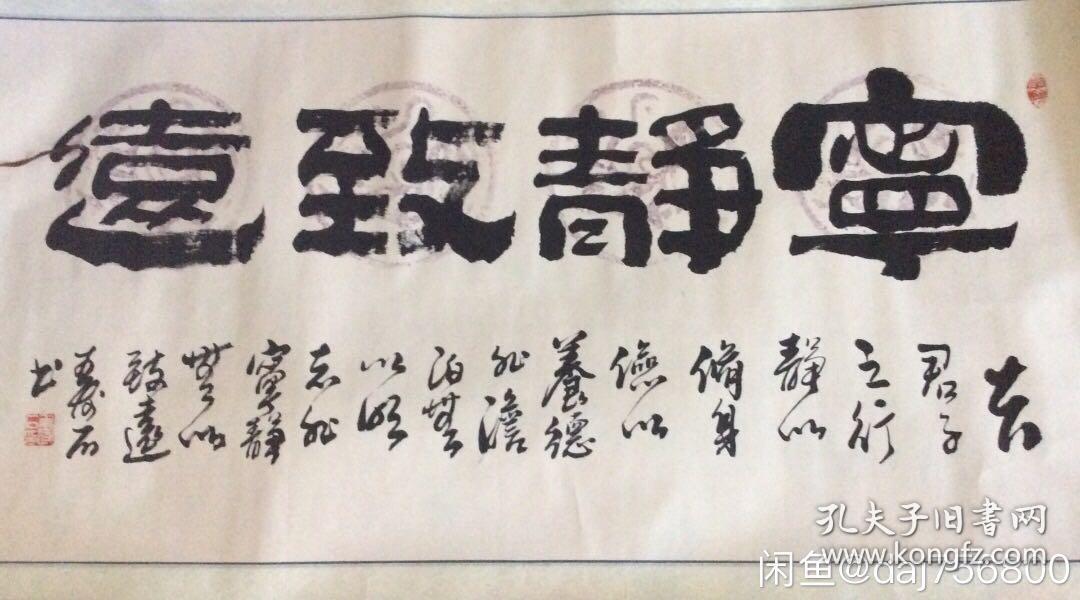 寧靜致遠
夫
君子
之行
靜以
脩身
儉以
養德
非澹
泊無
以明
志非
寧靜
無以
致遠
寿石
书
孔夫子旧書网
www.kongfz.com
闲鱼@daj756800